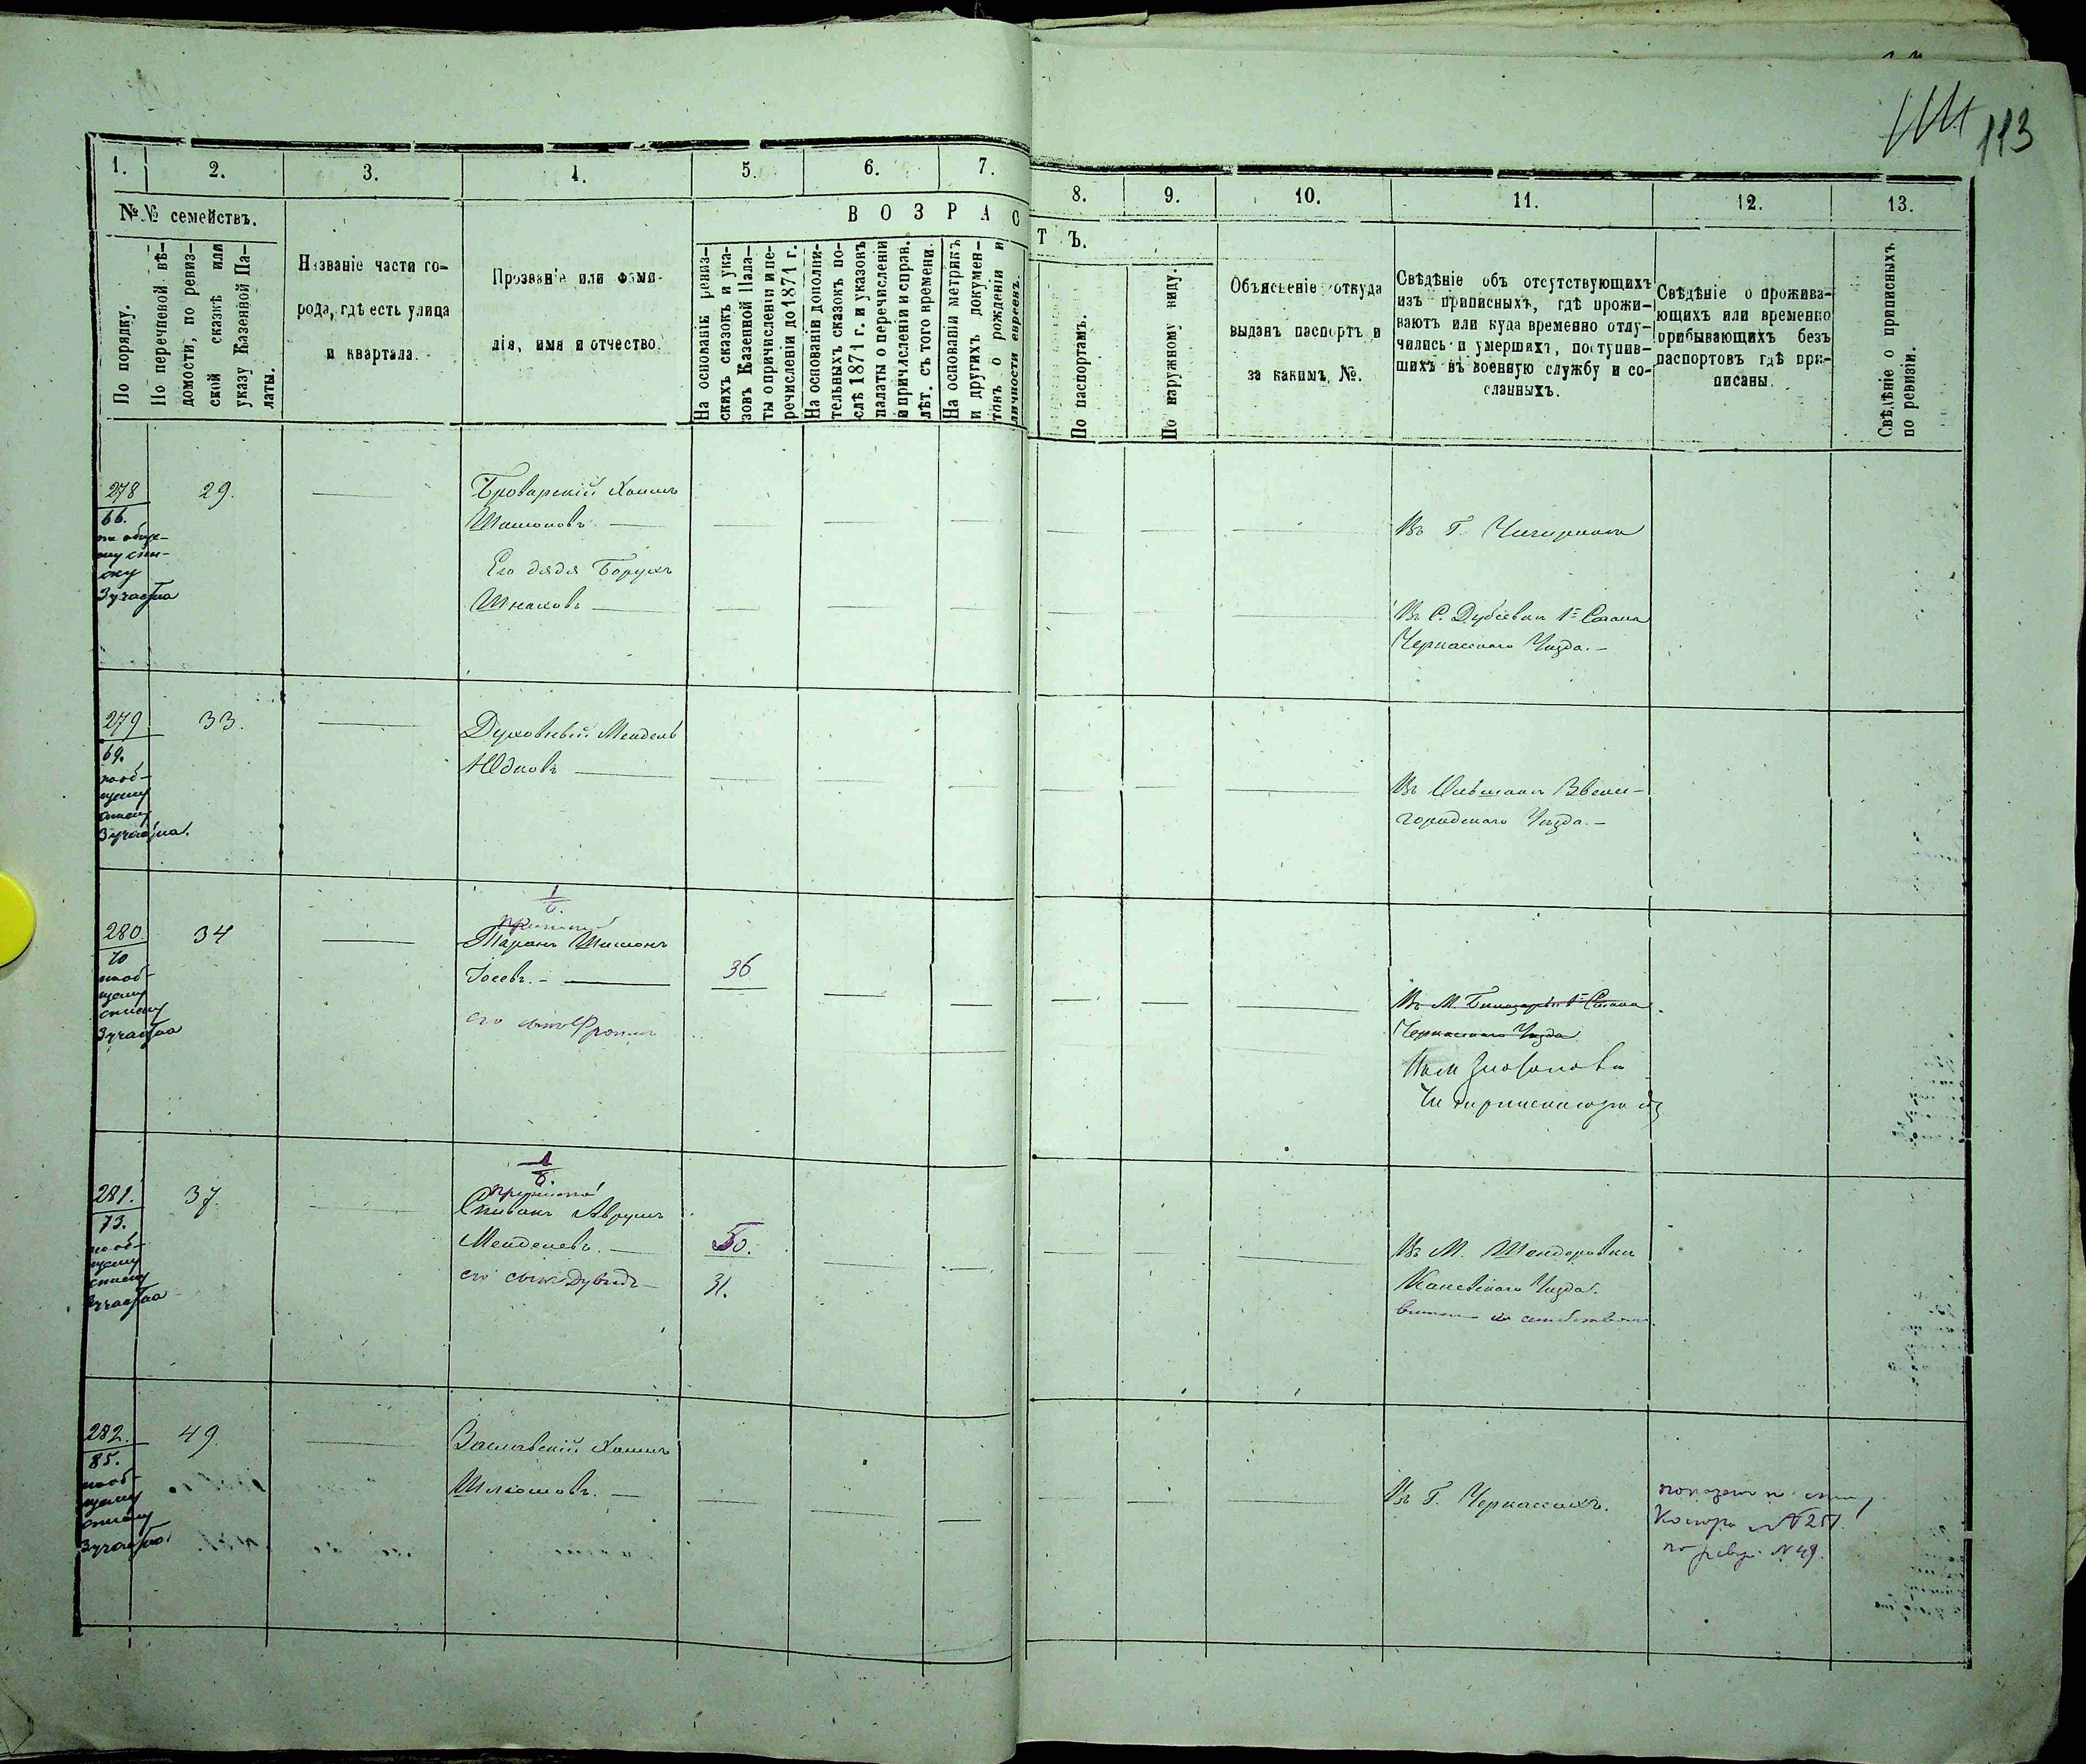 113
1. 2. 3. 4. 5. 6. 7. 8. 9. 10. 11. 12. 13.
№№ семействъ.
По порядку.
По перечневой вѣ-
домости, по ревиз-
ской сказкѣ или
указу Казенной Па-
латы.
Названіе части го-
рода, гдѣ есть улица
и квартала.
Прозваніе или фами-
лія, имя и отчество.
ВОЗРАСТЪ.
На основаніе ревиз-
скихъ сказокъ и ука-
зовъ Казенной Пала-
ты о причисленіи и пе-
речисленіи до 1871 г.
На основаніи дополни-
тельныхъ сказокъ по-
слѣ 1871 г. и указовъ
палаты о перечисленіи
и причисленіи и справ.
лѣт. съ того времени.
На основаніи метрикъ
и другихъ докумен-
товъ о рожденіи и
личности евреевъ.
По паспортамъ.
По наружному виду.
Объясненіе откуда
выданъ паспортъ и
за какимъ №.
Свѣдѣніе объ отсутствующихъ
изъ приписныхъ, гдѣ прожи-
ваютъ или куда временно отлу-
чились и умершихъ, поступив-
шихъ въ военную службу и со-
сланныхъ.
Свѣдѣніе о прожива-
ющихъ или временно
прибывающихъ безъ
паспортовъ гдѣ при-
писаны.
Свѣдѣніе о приписныхъ
по ревизіи.
278 29.
66.
по обще-
му спи-
ску
3 участка
Броварскій Хаимъ
Шимоновъ
Въ Г. Чигиринѣ
Его дядя Борухъ
Ицковъ
Въ С. Дубіевкѣ 1го Стана
Черкасскаго Уѣзда.
279 33.
69.
по об-
щему
списку
3 участка.
Духовный Мендель
Юдковъ
Въ Ольшанѣ Звени-
городскаго Уѣзда.
280 34
70
по об-
щему
списку
3 участка
Таранъ Шимонъ
Іосевъ.
36
его сынъ Фроимъ
Въ М. 1го Стана
Черкасскаго Уѣзда
281. 37.
73.
по об-
щему
списку
3 участка
Спивакъ Аврумъ
Менделевъ.
50.
его сынъ Дувидъ
31.
Въ М. Шендеровкѣ
Каневскаго Уѣзда.
282. 49.
85.
по об-
щему
списку
3 участка
Заславскій Хаимъ
Шлиомовъ.
Въ Г. Черкассахъ.
№ 251.
по ревиз. № 49.